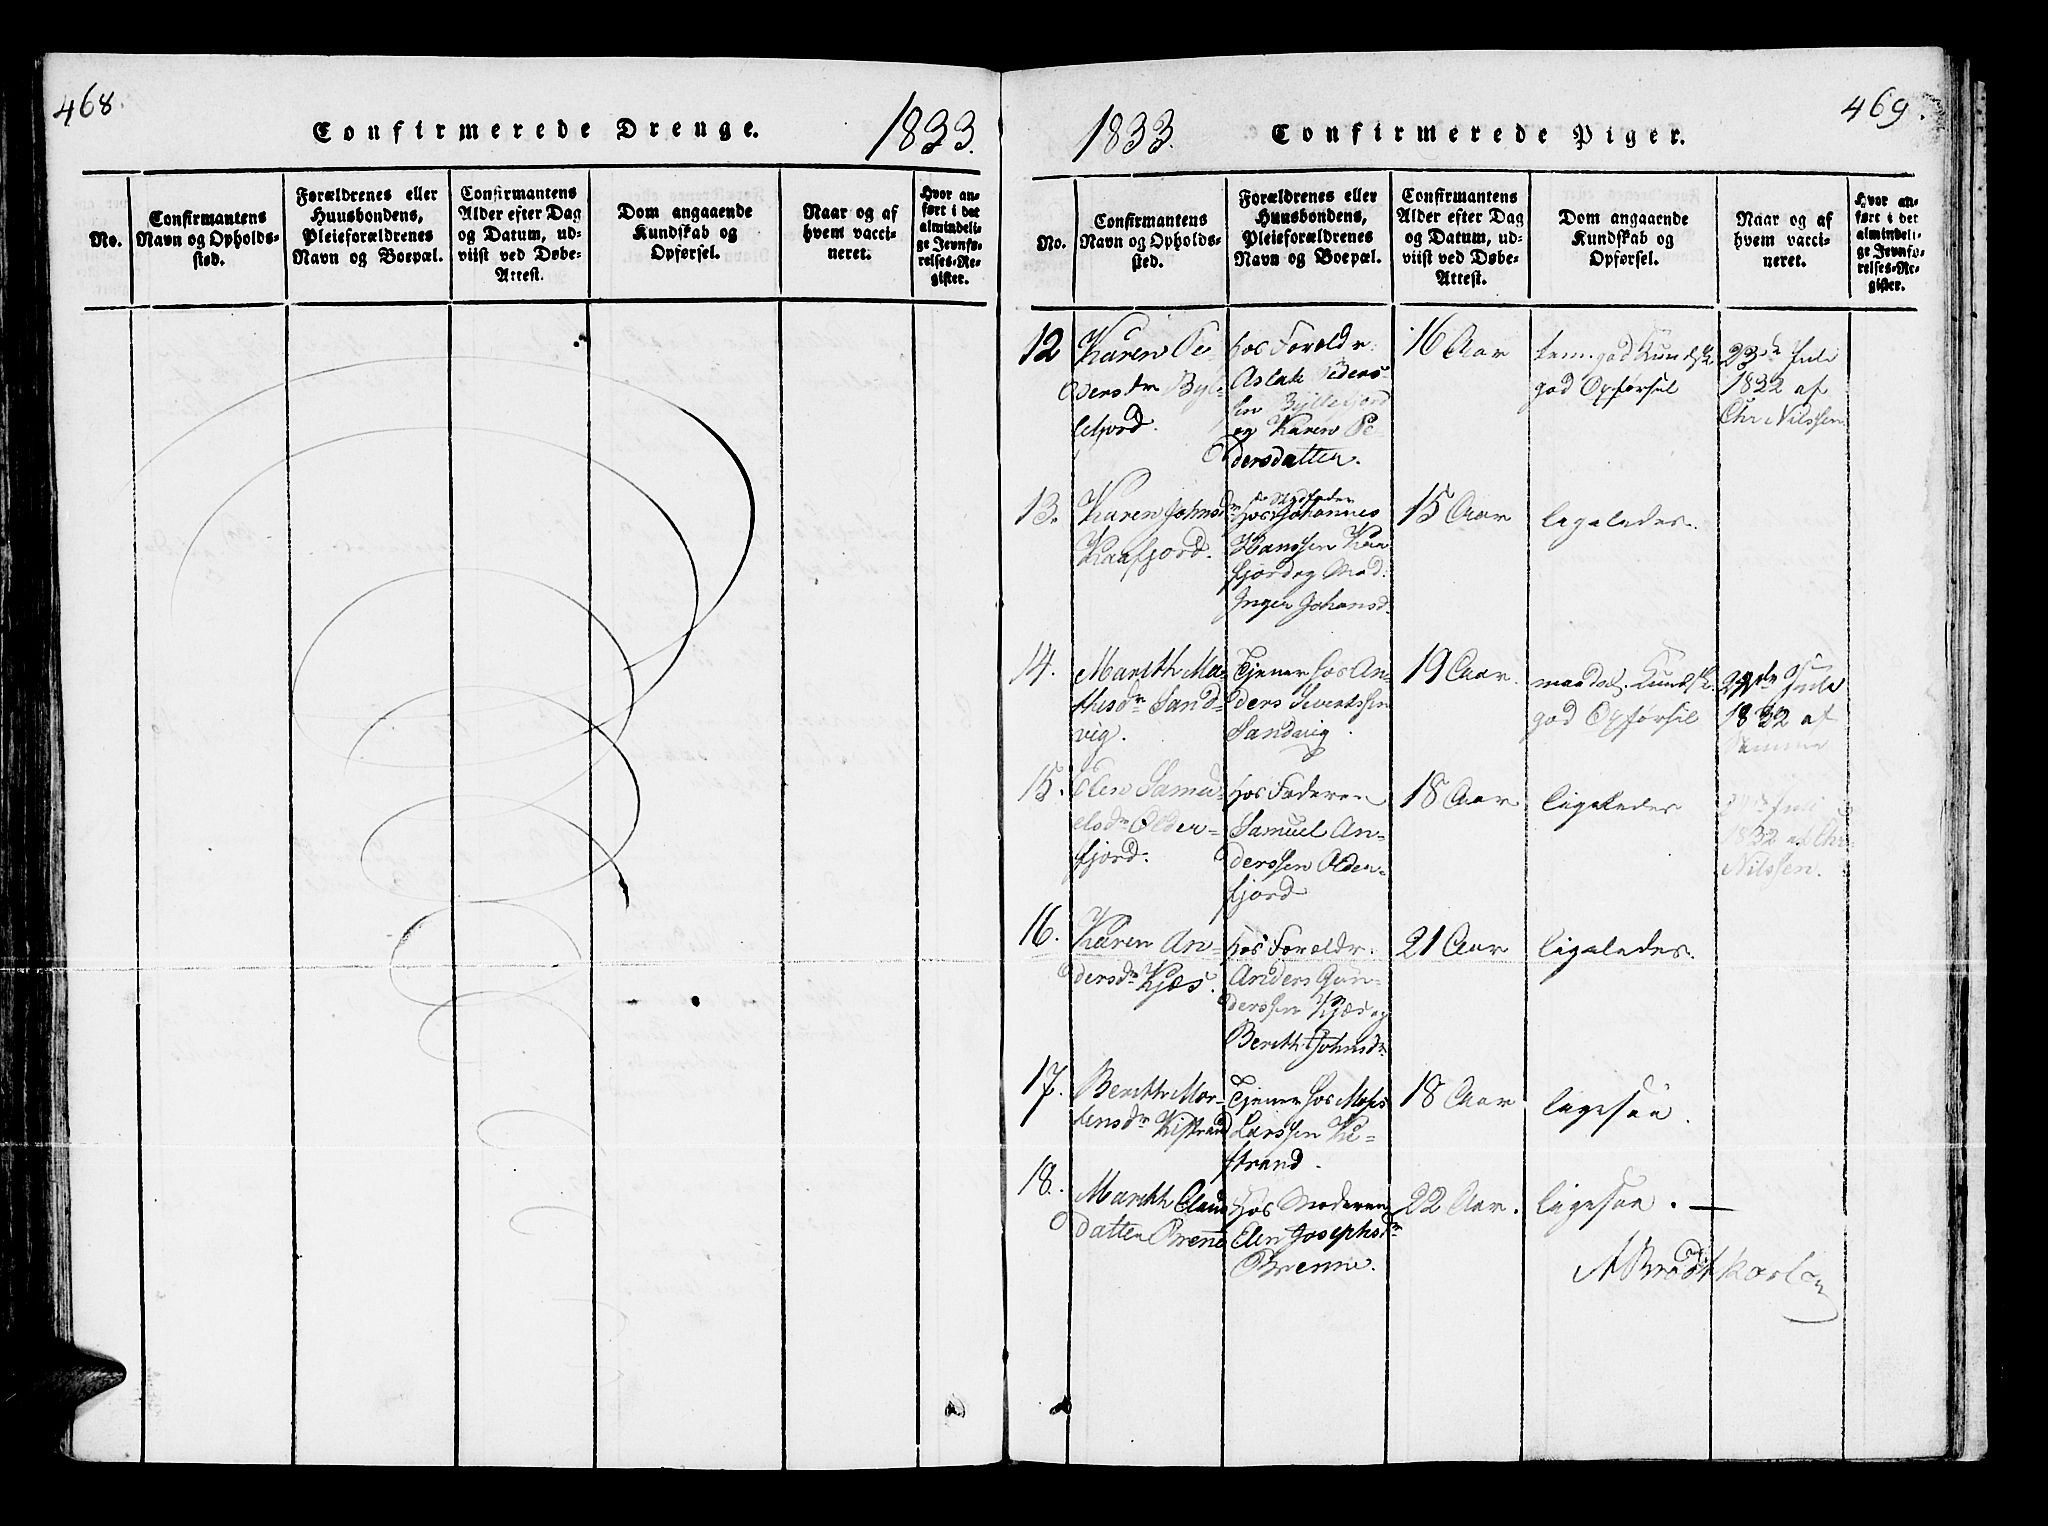 468.
Confirmerede Drenge.
1833.
No.
Confirmantens
Navn og Opholds-
sted.
Forældrenes eller
Huusbondens,
Pleieforældrenes
Navn og Boepæl.
Confirmantens
Alder efter Dag
og Datum, ud-
viist ved Døbe-
Attest.
Dom angaaende
Kundskab og
Opførsel.
Naar og af
hvem vacci-
neret.
Hvor an-
ført i det
almindeli-
ge Jevnfø-
relses-Re-
gister.
469.
1833.
Confirmerede Piger.
No.
Confirmantens
Navn og Opholds-
sted.
Forældrenes eller
Huusbondens,
Pleieforældrenes
Navn og Boepæl.
Confirmantens
Alder efter Dag
og Datum, ud-
viist ved Døbe-
Attest.
Dom angaaende
Kundskab og
Opførsel.
Naar og af
hvem vacci-
neret.
Hvor an-
ført i det
almindeli-
ge Jevnfø-
relses-Re-
gister.
12
Karen Pe-
dersdtr Byl-
lefjord.
hos Foreldr:
Aslak Peders-
sen Byllefjord
og Karen Pe-
dersdatter.
16 Aar
tem. god Kundsk.
god Opførsel
23de Juli
1832 af
Chr Nilssen
13.
Karen Johnsdr
Kaafjord.
Stedfader
hos Johannes
Hanssen Kaa-
fjord og Mod.
Inger Johansd.
15 Aar
ligeledes.
14.
Mareth Ma-
thisdr Sand-
vig.
Tjener hos An-
ders Sivertssen
Sandvig.
19 Aar.
maadel. Kundsk.
god Opførsel
Juli
1832 af
Samme
15.
Elen Samu-
elsdr Older-
fjord.
hos Faderen
Samuel An-
derssen Older-
fjord
18 Aar
ligeledes
Juli
1832 af Chr.
Nilssen.
16.
Karen An-
dersdr Kjæs.
hos Foreldr.
Anders Gun-
derssen Kjæs og
Bereth Johnsdr
21 Aar
ligeledes.
17.
Bereth Mor-
tensdr Kistrand
Tjener hos Moses
Larssen Ki-
strand.
18 Aar
ligesaa.
18.
Mareth Claus
datter Brenne
hos Moderen
Elen Josephsdr
Brenne.
22 Aar.
ligesaa. —
A Brodtkorb